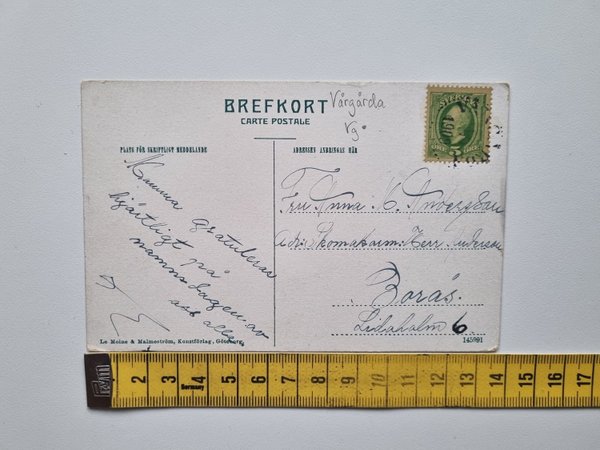 BREFKORT
CARTE POSTALE
Vårgårda
Vg
SVERIGE
5
PLATS FÖR SKRIFTLIGT MEDDELANDE
ADRESSEN ANBRINGAS HÄR
Mamma gratuleras
hjärtligt på
namnsdagen av
oss alla
Fru Anna M. Andersson
Adr. Skomakarm. Herr Anderson
Borås.
Lidaholm 6
Le Moine & Malmeström, Konstförlag, Göteborg.
145991
2 3 4 5 6 7 8 9 10 11 12 13 14 15 16 17
Germany